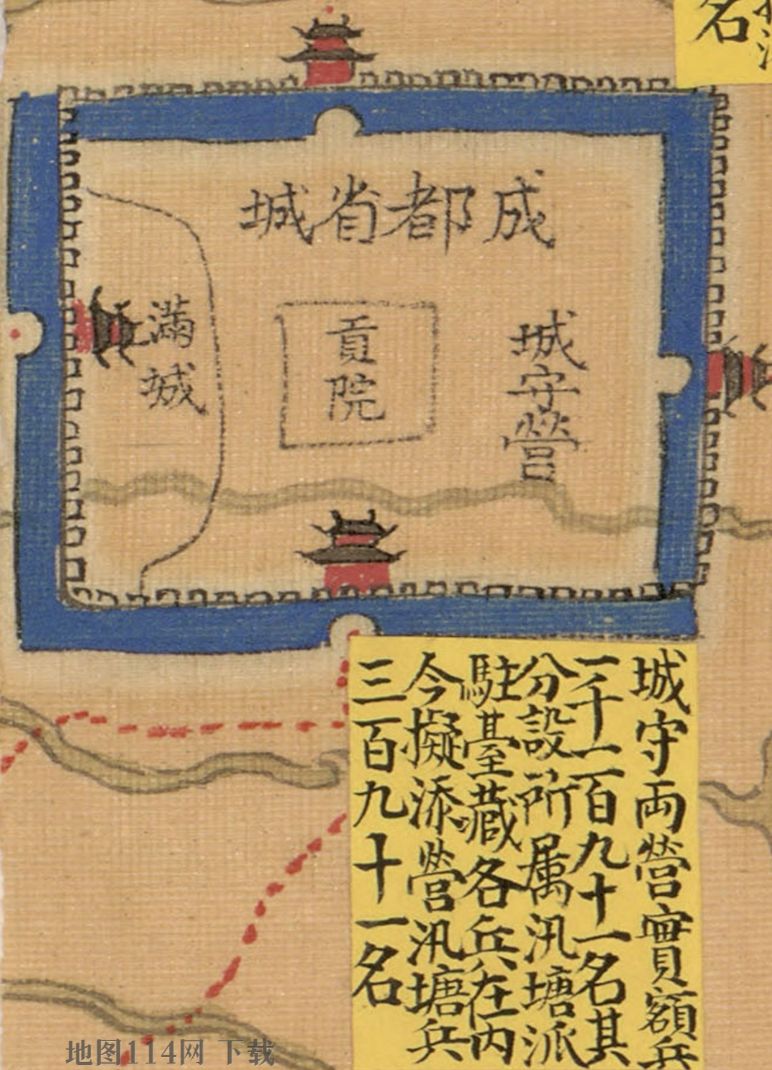 成都省城
城守營
貢院
滿城
名
城守両營實額兵
一千一百九十一名其
分設所属汛塘派
駐臺藏各兵在内
今擬添營汛塘兵
三百九十一名
地图114网 下载